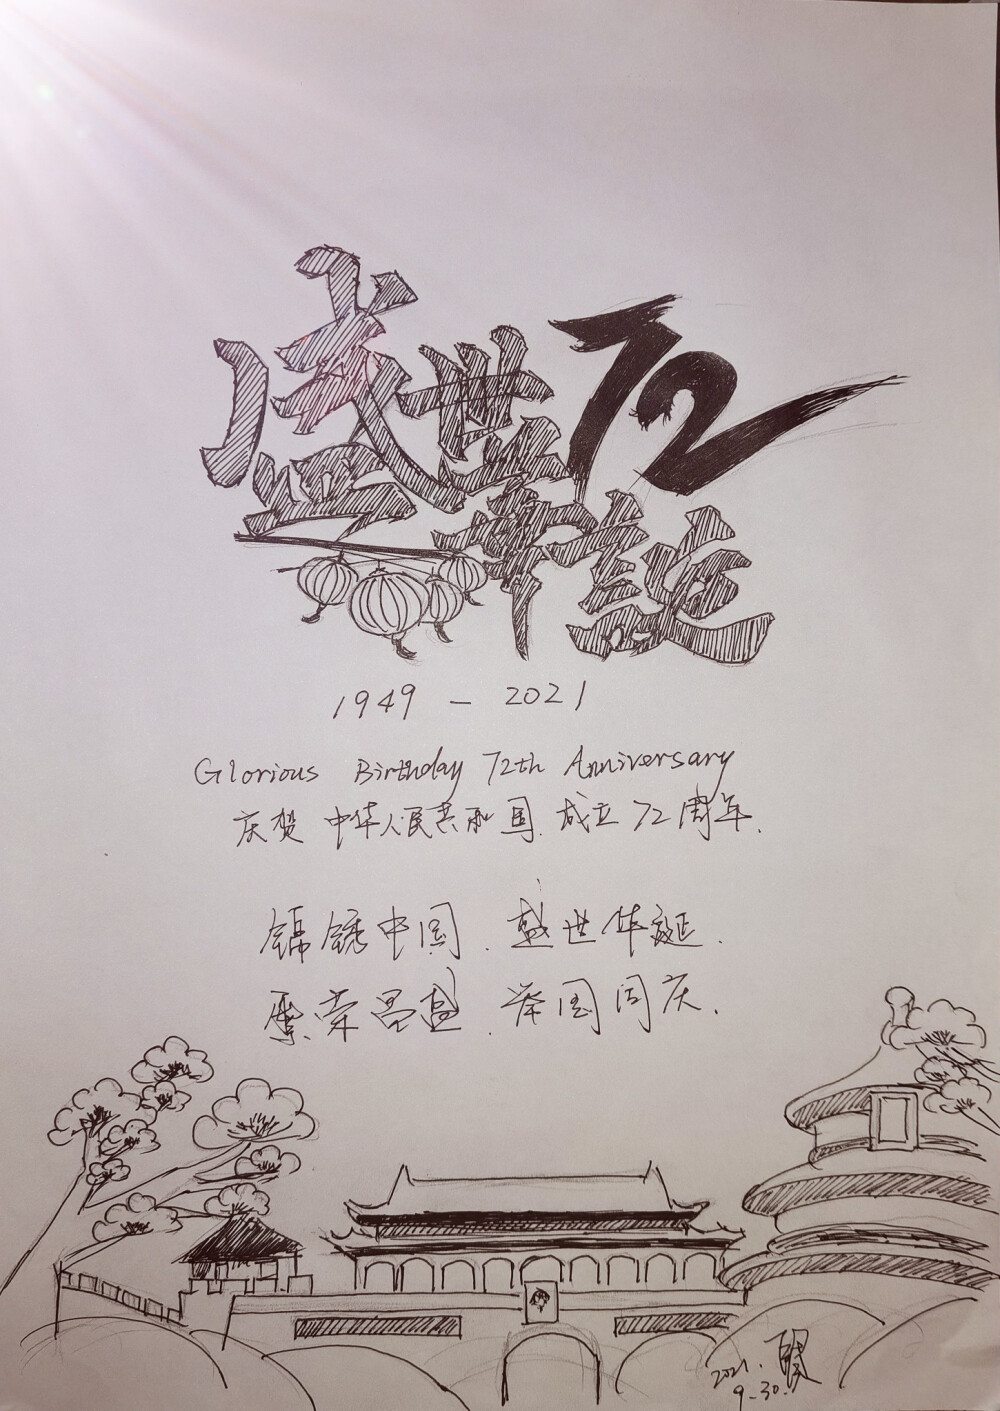 盛世 72
華誕
1949 - 2021
Glorious Birthday 72th Anniversary
庆贺 中华人民共和国 成立72周年.
锦锈中国. 盛世华诞.
繁荣昌盛. 举国同庆.
2021.
9.30.